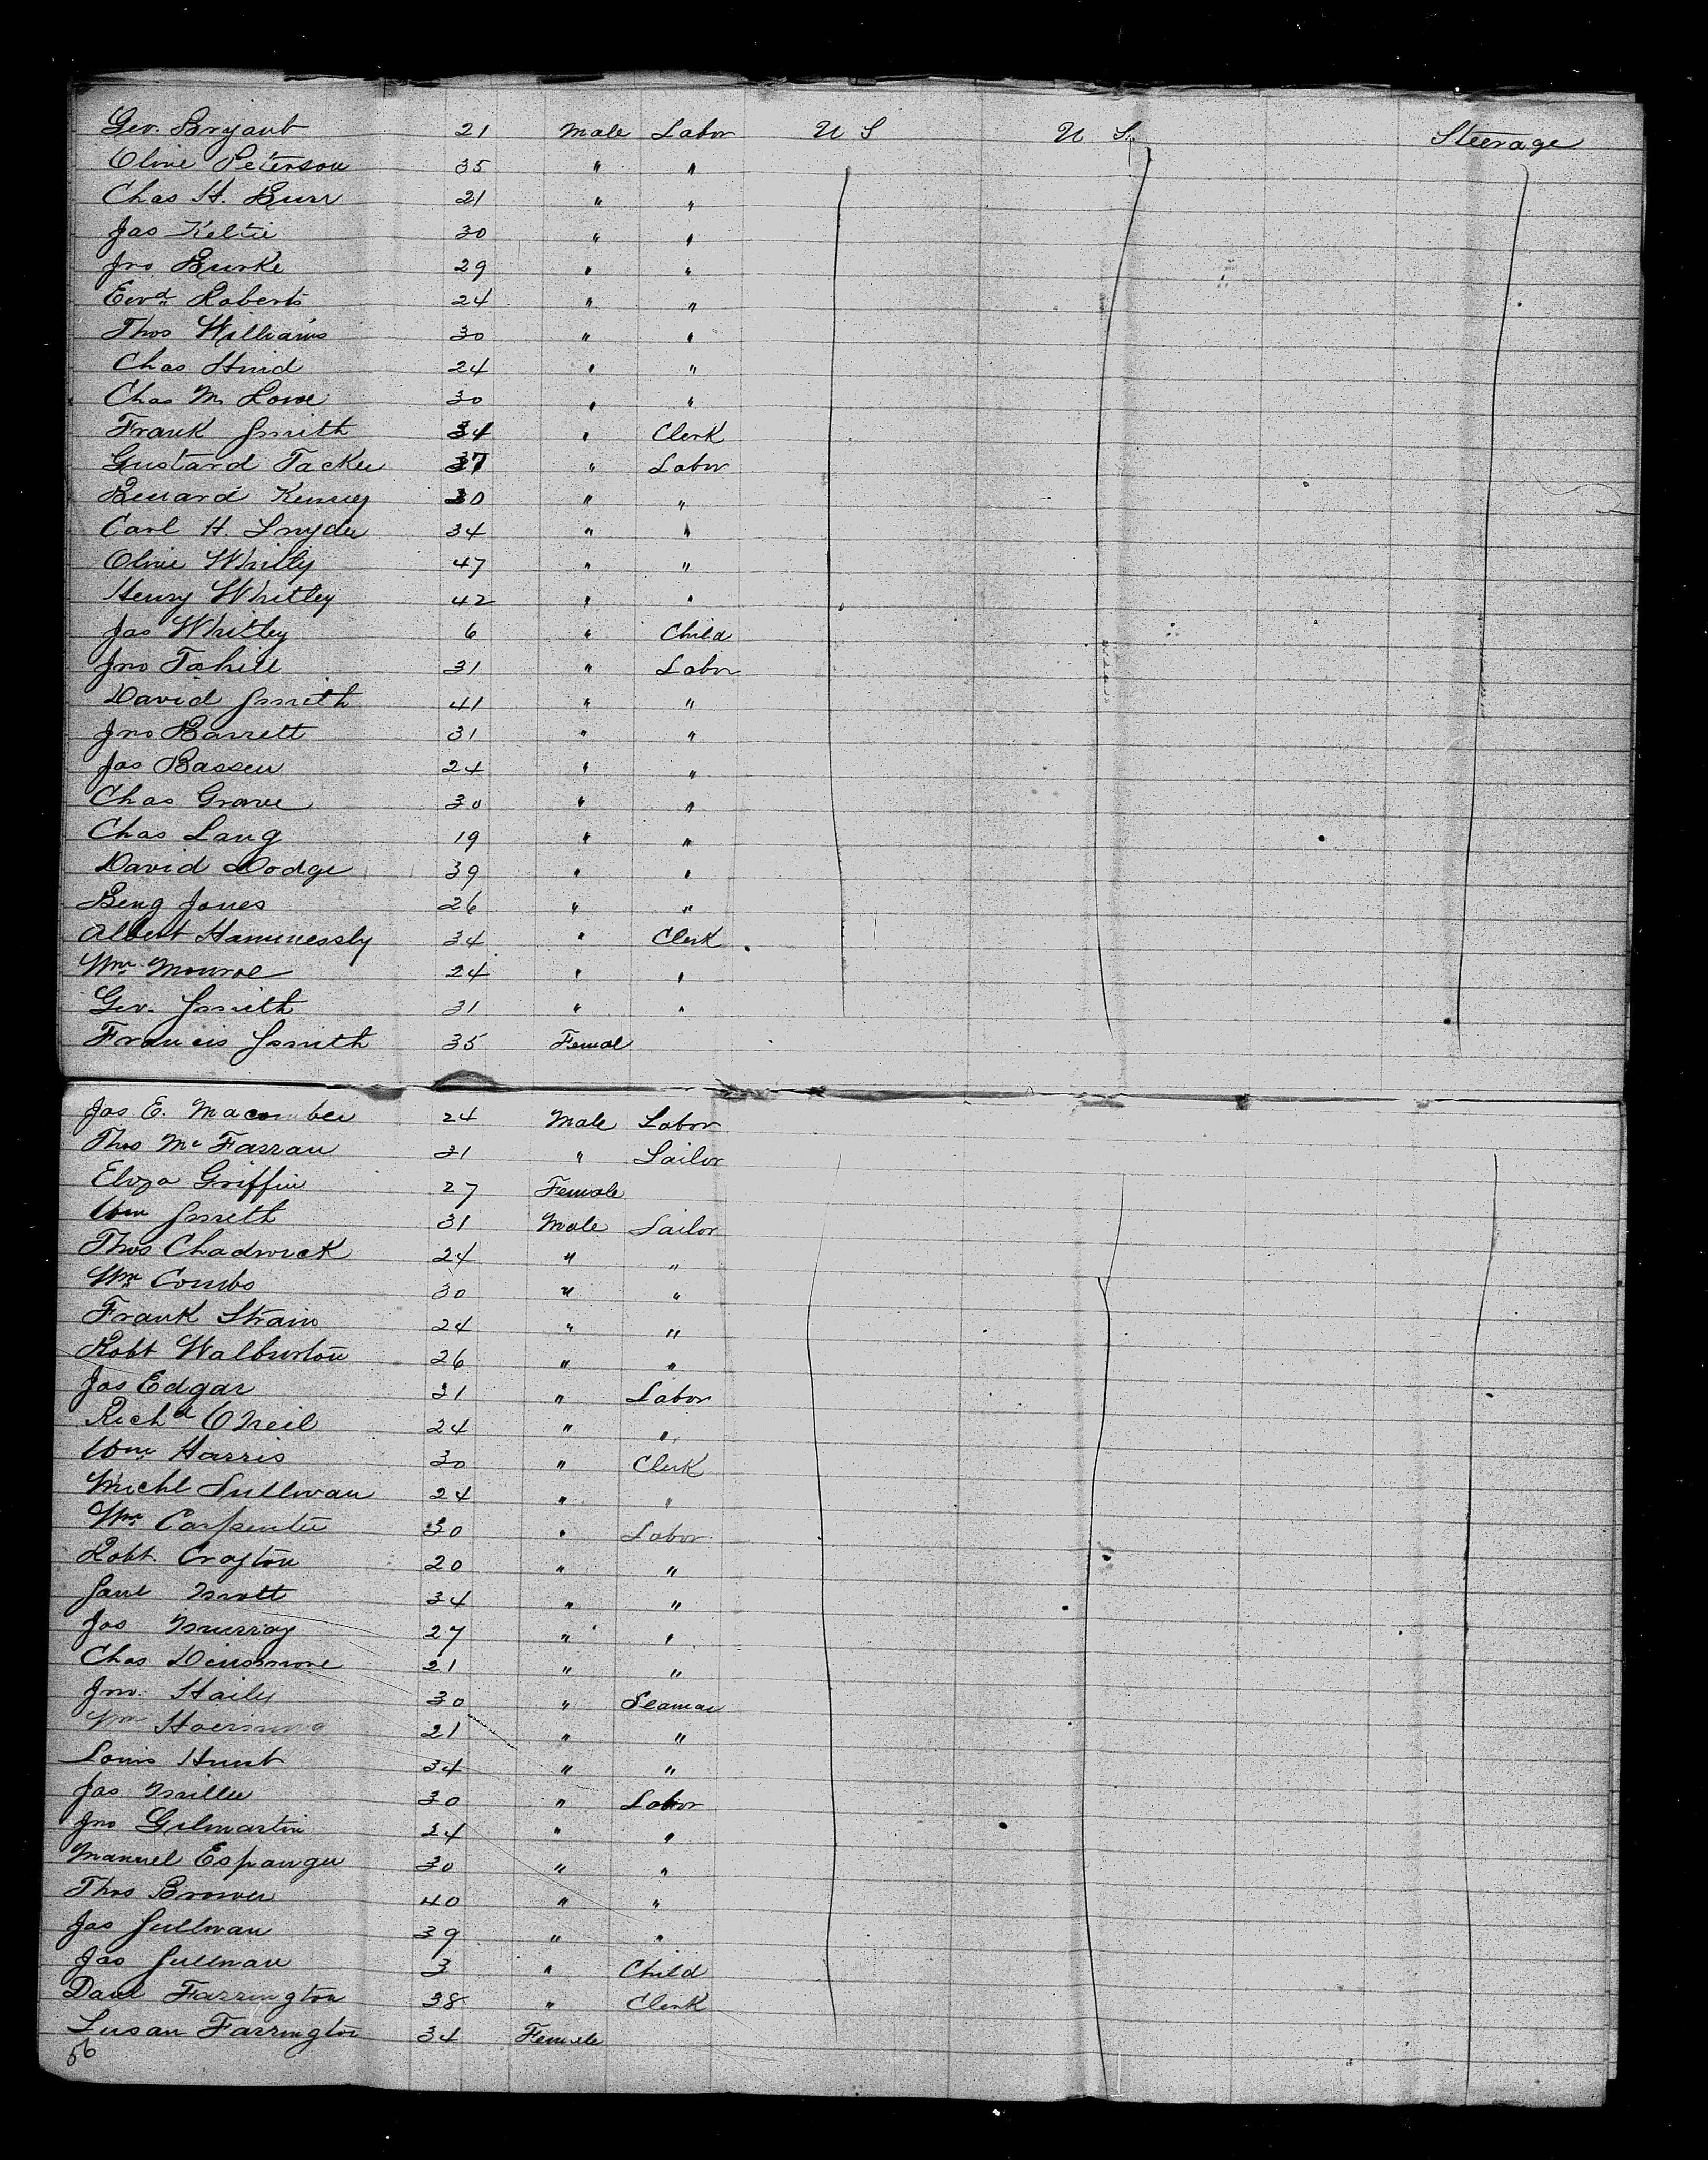 Geo. Bryant 21 Male Labor U S U S. Steerage
Oline Peterson 35 " "
Chas H. Burr 21 " "
Jas Keltie 30 " "
Jno Burke 29 " "
Edwd Roberts 24 " "
Thos Williams 30 " "
Chas Hind 24 " "
Chas M. Lowe 30 " "
Frank Smith 34 " Clerk
Gustard Tacker 37 " Labor
Benard Kenney 30 " "
Carl H. Snyder 34 " "
Olive Whitly 47 " "
Henry Whitley 42 " "
Jas Whitley 6 " Child
Jno Tahill 31 " Labor
David Smith 41 " "
Jno Barrett 31 " "
Jas Bassen 24 " "
Chas Grave 30 " "
Chas Lang 19 " "
David Dodge 39 " "
Benj Jones 26 " "
Albert Hammessly 34 " Clerk
Wm Monroe 24 " "
Geo. Smith 31 " "
Francis Smith 35 Femal
Jas E. Macomber 24 Male Labor
Thos Mc Farran 31 " Sailor
Eliza Griffin 27 Female
Wm Smith 31 Male Sailor
Thos Chadwick 24 " "
Wm Combs 30 " "
Frank Strain 24 " "
Robt Walburton 26 " "
Jas Edgar 31 " Labor
Richd O Neil 24 " "
Wm Harris 30 " Clerk
Michl Sullivan 24 " "
Wm Carpenter 30 " Labor
Robt. Crafton 20 " "
Saml Mott 34 " "
Jas Murray 27 " "
Chas Dinsmore 21 " "
Jno. Haily 30 " Seaman
Wm 21 " "
Louis Hunt 34 " "
Jas Miller 30 " Labor
Jno Gilmartin 24 " "
Manuel Espanger 30 " "
Thos Brower 40 " "
Jas Sullivan 39 " "
Jas Sullivan 3 " Child
Danl Farrington 38 " Clerk
Susan Farrington 34 Female
56